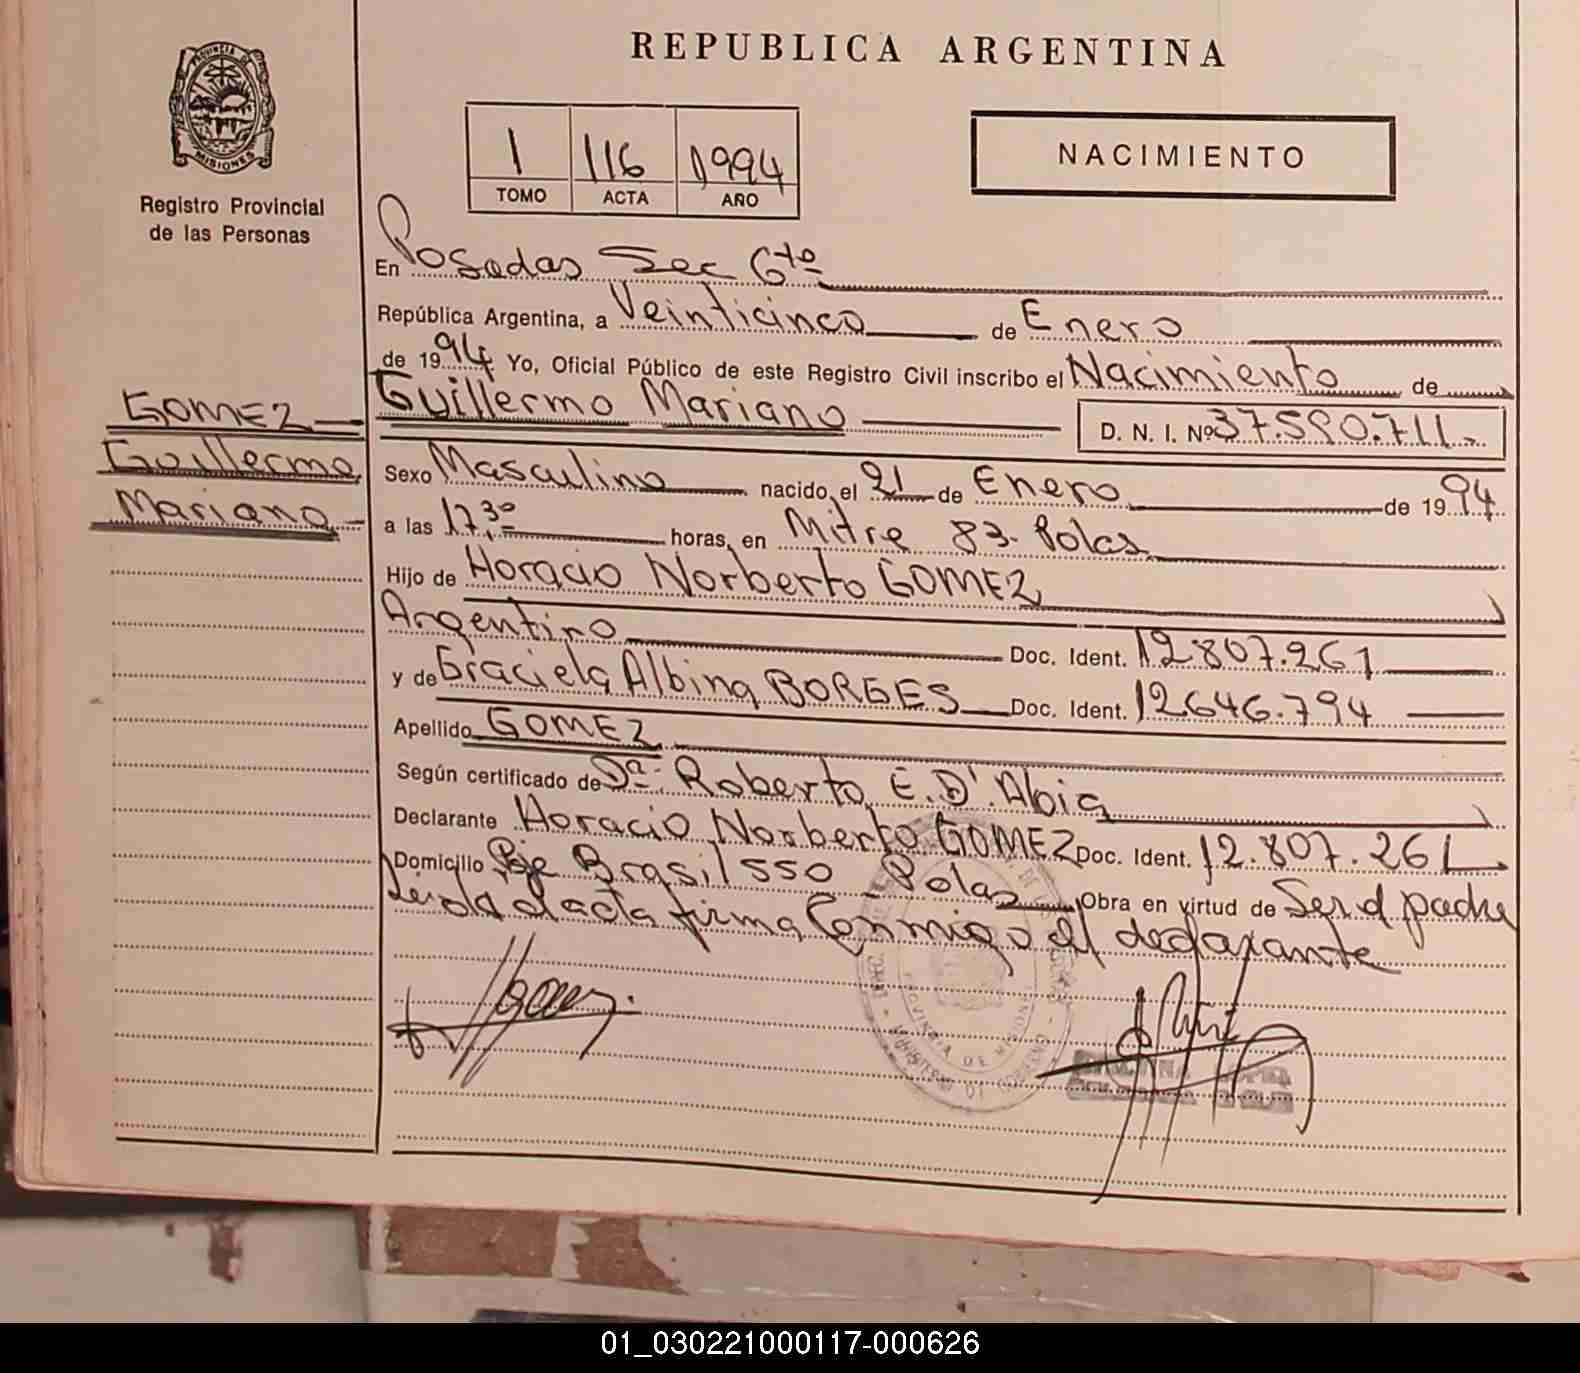 REPUBLICA ARGENTINA
PROVINCIA DE MISIONES
Registro Provincial
de las Personas
1 116 1994
TOMO ACTA AÑO
NACIMIENTO
En Posadas Sec 6ta
República Argentina, a Veinticinco de Enero
de 1994 Yo, Oficial Público de este Registro Civil inscribo el Nacimiento de
Guillermo Mariano D. N. I. Nº 37.590.711
GOMEZ
Guillermo
Mariano
Sexo Masculino nacido el 21 de Enero de 1994
a las 17,30 horas, en Mitre 83- Pdas
Hijo de Horacio Norberto GOMEZ
Argentino Doc. Ident. 12.807.261
y de Graciela Albina BORGES Doc. Ident. 12646.794
Apellido GOMEZ
Según certificado de Roberto E. D'
Declarante Horacio Norberto GOMEZ Doc. Ident. 12.807.261
Domicilio Pje Brasil 550 Pdas Obra en virtud de Ser el padre
Leida el acta firma Conmigo el declarante
PROVINCIA DE MISIONES
01_030221000117-000626